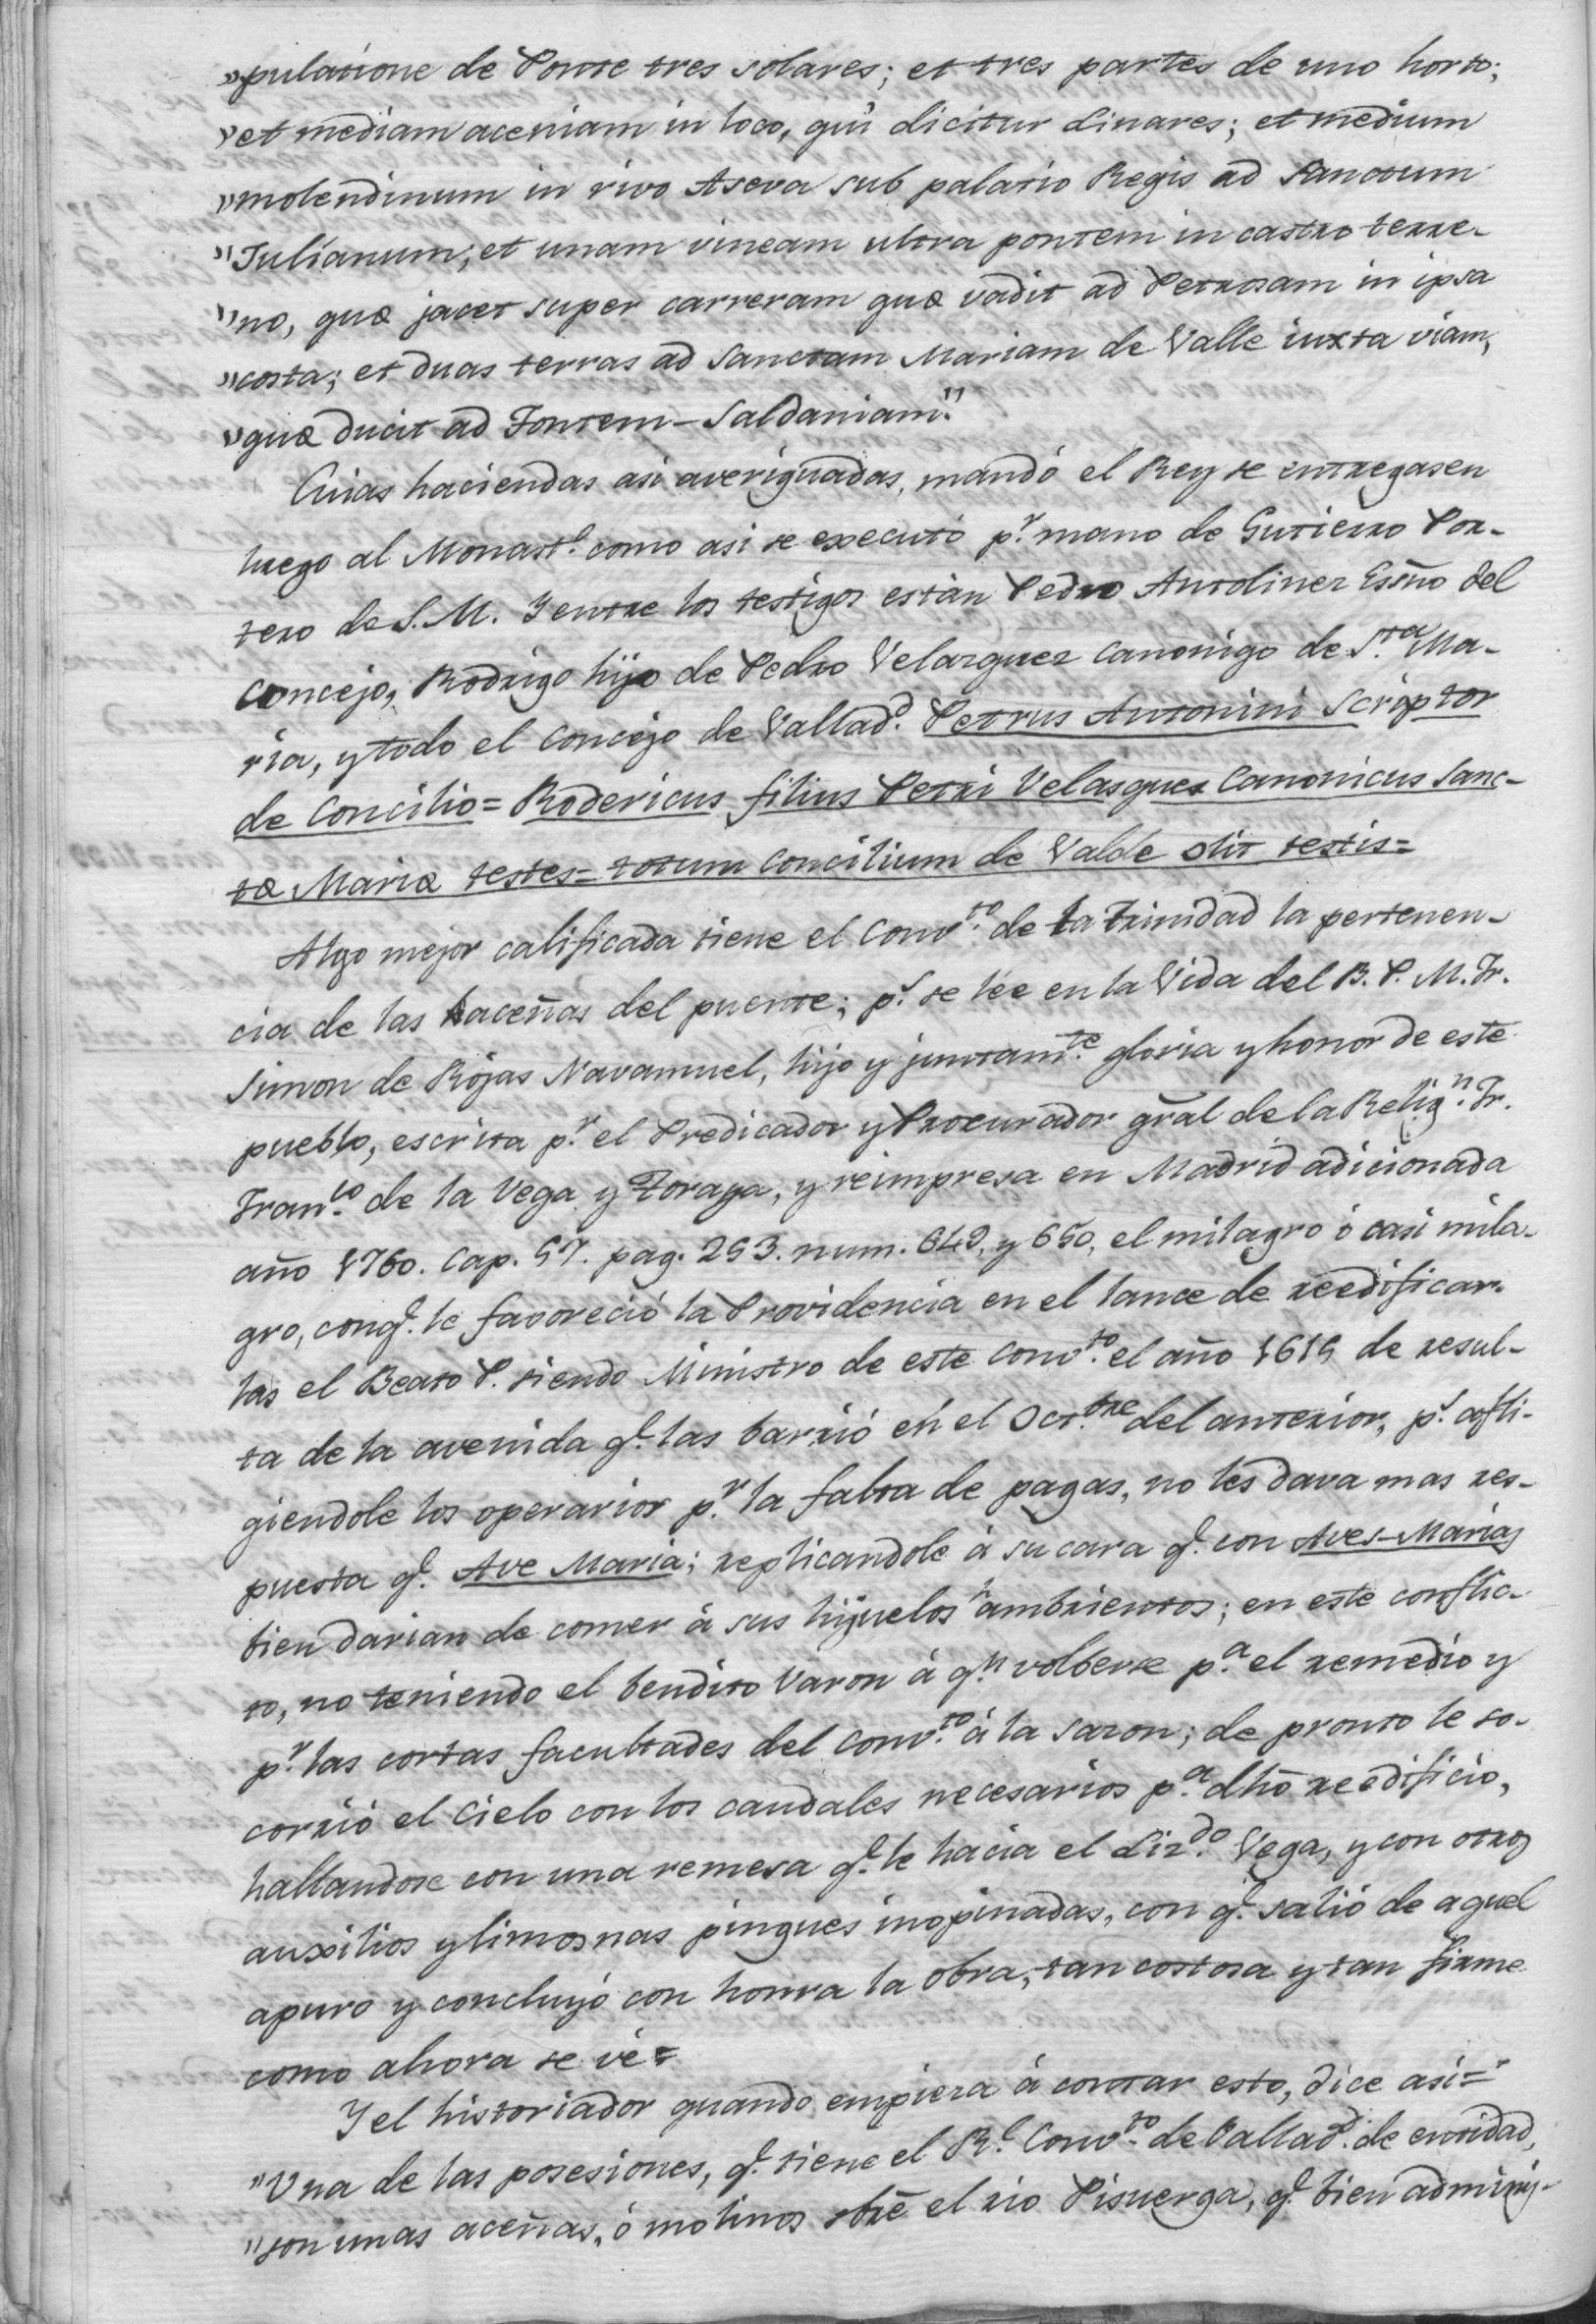 "pulatione de Ponte tres solares; et tres partes de uno horto;
"et mediam aceniam in loco, qui dicitur Linares; et medium
"molendinum in rivo Aseva sub palatio Regis ad Sanctum
"Julianum; et unam vineam ultra pontem in castro terre-
"no, quæ jacet super carreram quæ vadit ad Petrosam in ipsa
"costa; et duas terras ad Sanctam Mariam de Valle iuxta viam,
"quæ ducit ad Fontem-Saldaniam."
Cuias haciendas asi averiguadas, mandó el Rey se entregasen
luego al Monast.º como asi se executó p.r mano de Gutierro Por-
tero de S.M. Y entre los testigos están Pedro Antolinez Essño del
Concejo, Rodrigo hijo de Pedro Velazquez canonigo de S.ta Ma-
ria, y todo el Concejo de Vallad.d Petrus Antonini Scriptor
de Concilio= Rodericus filius Petri Velasques Canonicus Sanc-
tæ Mariæ testes= totum Concilium de Valde olit testis=
Algo mejor calificada tiene el Conv.to de la Trinidad la pertenen-
cia de las haceñas del puente; p.s se lée en la Vida del B. P. M. Fr.
Simon de Rojas Navamuel, hijo y juntam.te gloria y honor de este
pueblo, escrita p.r el Predicador y Procurador grãl de la Relig.n Fr.
Fran.co de la Vega y Toraya, y reimpresa en Madrid adicionada
año 1760. Cap. 57. pag. 253. num. 649, y 650, el milagro ó casi mila-
gro, con q.e le favoreció la Providencia en el lance de reedificar-
las el Beato P. siendo Ministro de este Conv.to el año 1615 de resul-
ta de la avenida q.e las barrió en el Oct.bre del anterior, p.s afli-
giendole los operarios p.r la falta de pagas, no les dava mas res-
puesta q.e Ave Maria; replicandole á su cara q.e con Aves-Marias
bien darian de comer á sus hijuelos hambrientos; en este conflic-
to, no teniendo el bendito Varon á q.n volberse p.a el remedio y
p.r las cortas facultades del Conv.to á la sazon; de pronto le so-
corrió el Cielo con los caudales necesarios p.a dhõ reedificio,
hallandose con una remesa q.e le hacia el Liz.do Vega, y con otros
auxilios y limosnas pingues inopinadas, con q.e salió de aquel
apuro y concluyó con honra la obra, tan costosa y tan firme
como ahora se vé=
Y el historiador quando empieza á contar esto, dice asi=
"Una de las posesiones, q.e tiene el R.l Conv.to de Vallad.d de entidad,
"son unas aceñas, ó molinos sbrẽ el rio Pisuerga, q.e bien adminis-